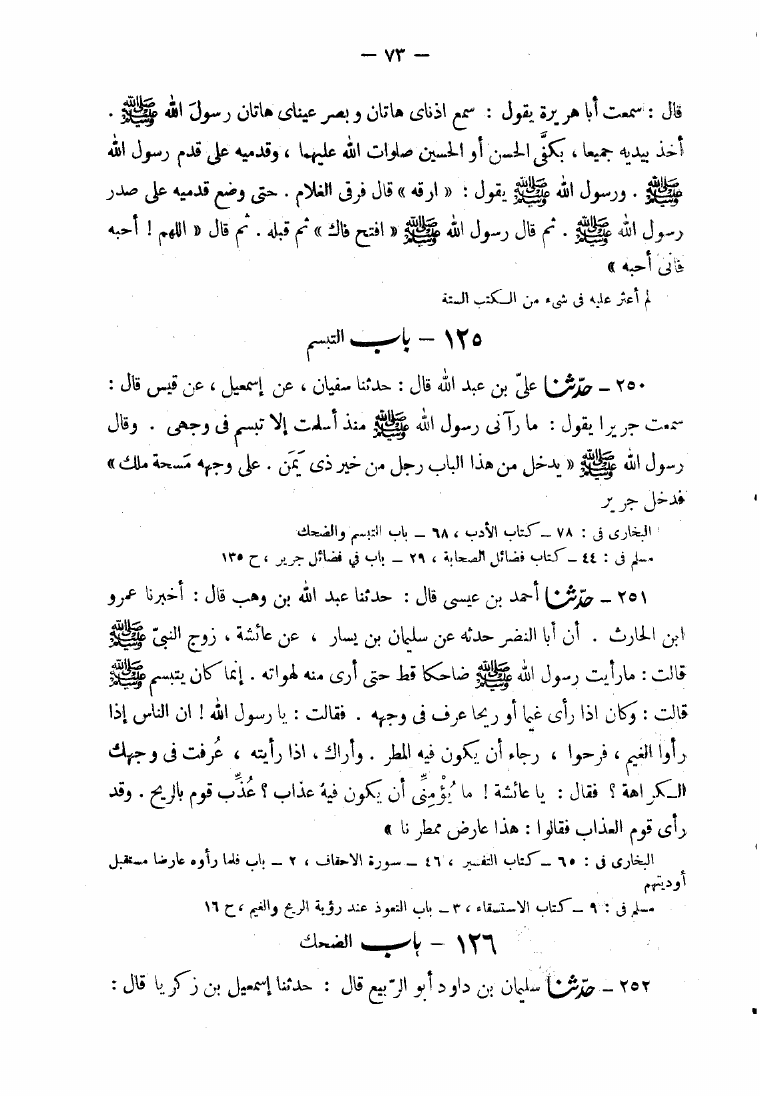 — ٧٣ —
قال : سمعت أبا هريرة يقول : سمع اذناى هاتان و بصر عيناى هاتان رسولَ الله ﷺ .
أخذ بيديه جميعا ، بكفَّى الحسن أو الحسين صلوات الله عليهما ، وقدميه على قدم رسول الله
ﷺ . ورسول الله ﷺ يقول : « ارقه » قال فرقى الغلام . حتى وضع قدميه على صدر
رسول الله ﷺ . ثم قال رسول الله ﷺ « افتح فاك » ثم قبله . ثم قال « اللهم ! أحبه
فانى أحبه »
لم أعثر عليه فى شىء من الكتب الستة
١٢٥ – باب التبسم
٢٥٠ – حدّثنا علىّ بن عبد الله قال : حدثنا سفيان ، عن إسمعيل ، عن قيس قال :
سمعت جريرا يقول : ما رآنى رسول الله ﷺ منذ أسلمت إلا تبسم فى وجهى . وقال
رسول الله ﷺ « يدخل من هذا الباب رجل من خير ذى يَمَن . على وجهه مَسحة ملك »
فدخل جرير
البخارى فى : ٧٨ – كتاب الأدب ، ٦٨ – باب التبسم والضحك
مسلم فى : ٤٤ – كتاب فضائل الصحابة ، ٢٩ – باب في فضائل جرير ، ح ١٣٥
٢٥١ – حدّثنا أحمد بن عيسى قال : حدثنا عبد الله بن وهب قال : أخبرنا عمرو
ابن الحارث . أن أبا النضر حدثه عن سليمان بن يسار ، عن عائشة ، زوج النبىّ ﷺ
قالت : مارأيت رسول الله ﷺ ضاحكا قط حتى أرى منه لهواته . إنما كان يتبسم ﷺ
قالت : وكان اذا رأى غيما أو ريحا عرف فى وجهه . فقالت : يا رسول الله ! ان الناس إذا
رأوا الغيم ، فرحوا ، رجاء أن يكون فيه المطر . وأراك ، اذا رأيته ، عُرفت فى وجهك
الكراهة ؟ فقال : يا عائشة ! ما يُؤْمِنِّى أن يكون فيه عذاب ؟ عُذِّب قوم بالريح . وقد
رأى قوم العذاب فقالوا : هذا عارض ممطر نا »
البخارى فى : ٦٥ – كتاب التفسير ، ٤٦ – سورة الاحقاف ، ٢ – باب فلما رأوه عارضا مستقبل
أوديتهم
مسلم فى : ٩ – كتاب الاستسقاء ، ٣ – باب التعوذ عند رؤية الريح والغيم ، ح ١٦
١٢٦ – باب الضحك
٢٥٢ – حدّثنا سليمان بن داود أبو الرّبيع قال : حدثنا إسمعيل بن زكريا قال :